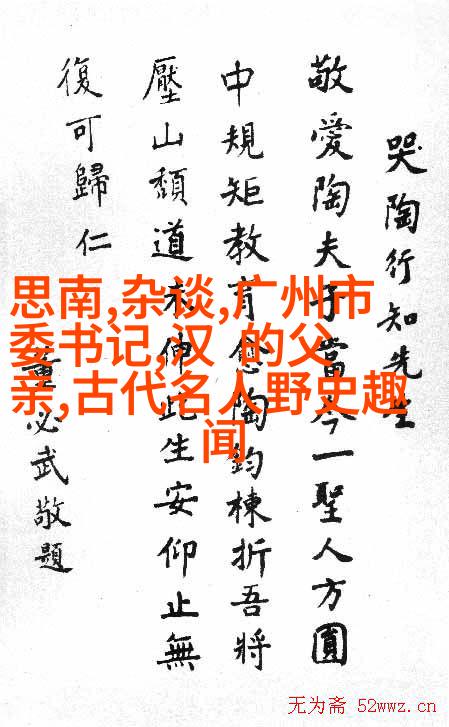 哭陶行知先生
敬愛陶夫子當今一聖人方圓
中規矩教育愈陶鈞棟折吾將
壓山頹道未伸此生安仰止無
復可歸仁
董必武敬題
思南,杂谈,广州市
委书记,汉 的父
亲,古代名人野史趣
闻
无为斋 52wwz.cn